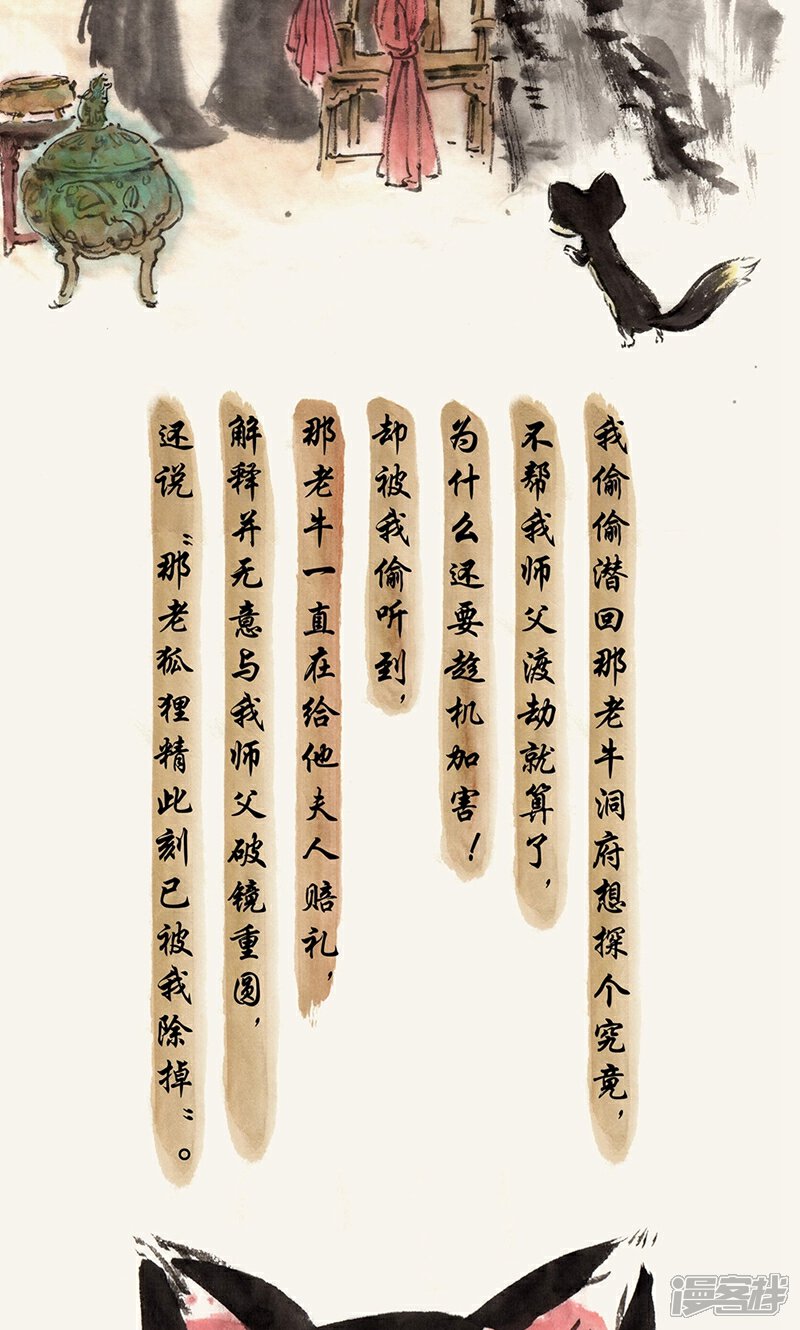 我偷偷潜回那老牛洞府想探个究竟，
不帮我师父渡劫就算了，
为什么还要趁机加害！
却被我偷听到，
那老牛一直在给他夫人赔礼，
解释并无意与我师父破镜重圆，
还说“那老狐狸精此刻已被我除掉”。
漫客栈